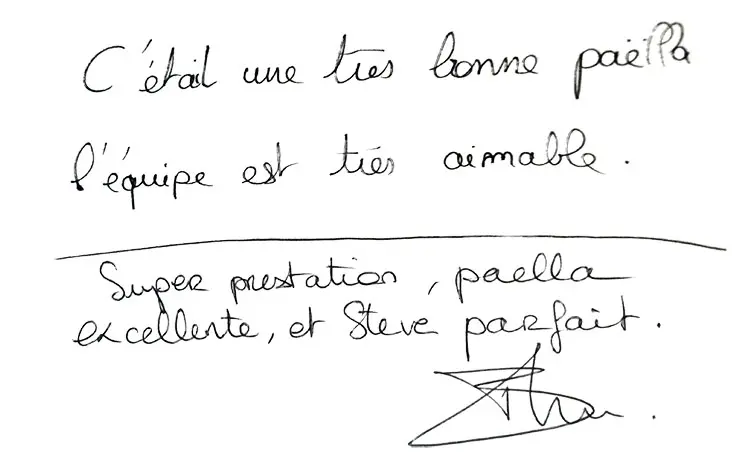 C'était une tres bonne paëlla
l'équipe est trés aimable.
Super prestation, paella
excellente, et Steve parfait.